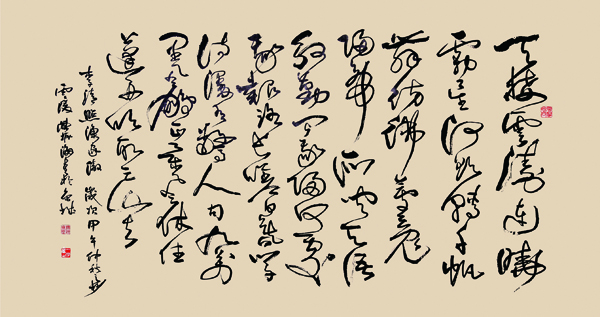 天接雲濤連曉
霧星河欲轉千帆
舞彷彿夢魂
歸帝所聞天語
殷勤問我歸何處
我報路長嗟日暮學
詩謾有驚人句九萬
里風鵬正舉風休住
蓬舟吹取三山去
李清照漁家傲 歲次甲午仲秋